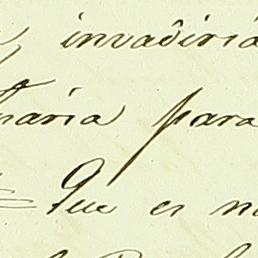 y invadiria
naria para
= Que es n